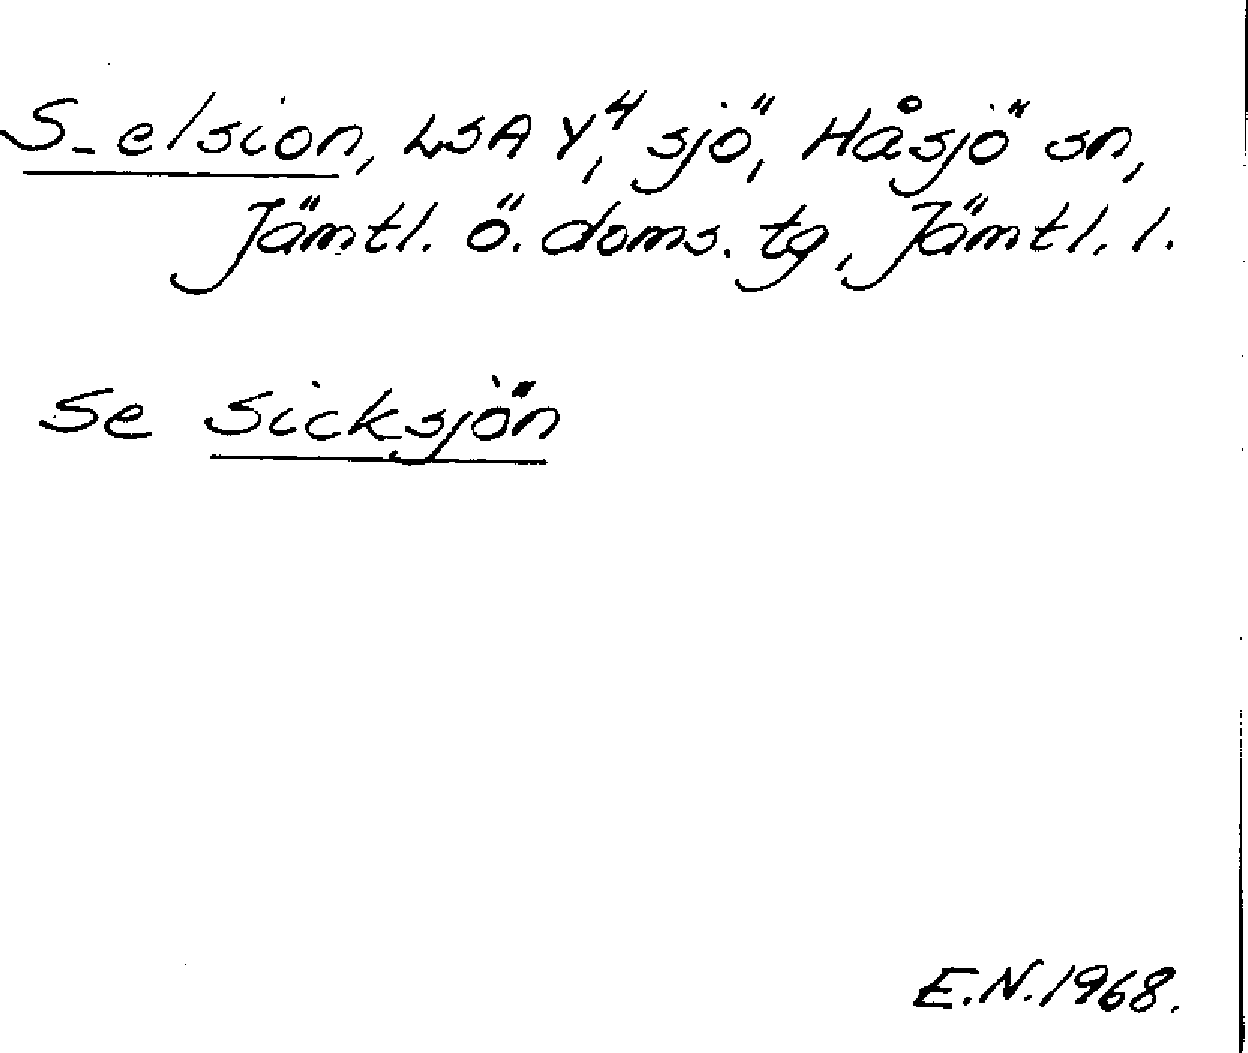 S_elsion, LSA Y⁴, sjö, Håsjö sn,
Jämtl. ö. doms. tg, Jämtl. l.
Se Sicksjön
E.N.1968.